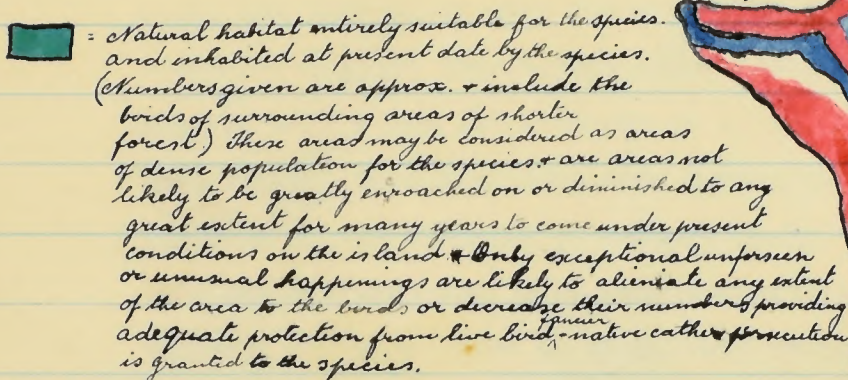 = Natural habitat entirely suitable for the species.
and inhabited at present date by the species.
(Numbers given are approx. + include the
birds of surrounding areas of shorter
forest.) These areas may be considered as areas
of dense population for the species. + are areas not
likely to be greatly enroached on or diminished to any
great extent for many years to come under present
conditions on the island. Only exceptional unforseen
or unusual happenings are likely to alieniate any extent
of the area to the birds or decrease their numbers providing
adequate protection from live bird fancier - native catcher persecution
is granted to the species.